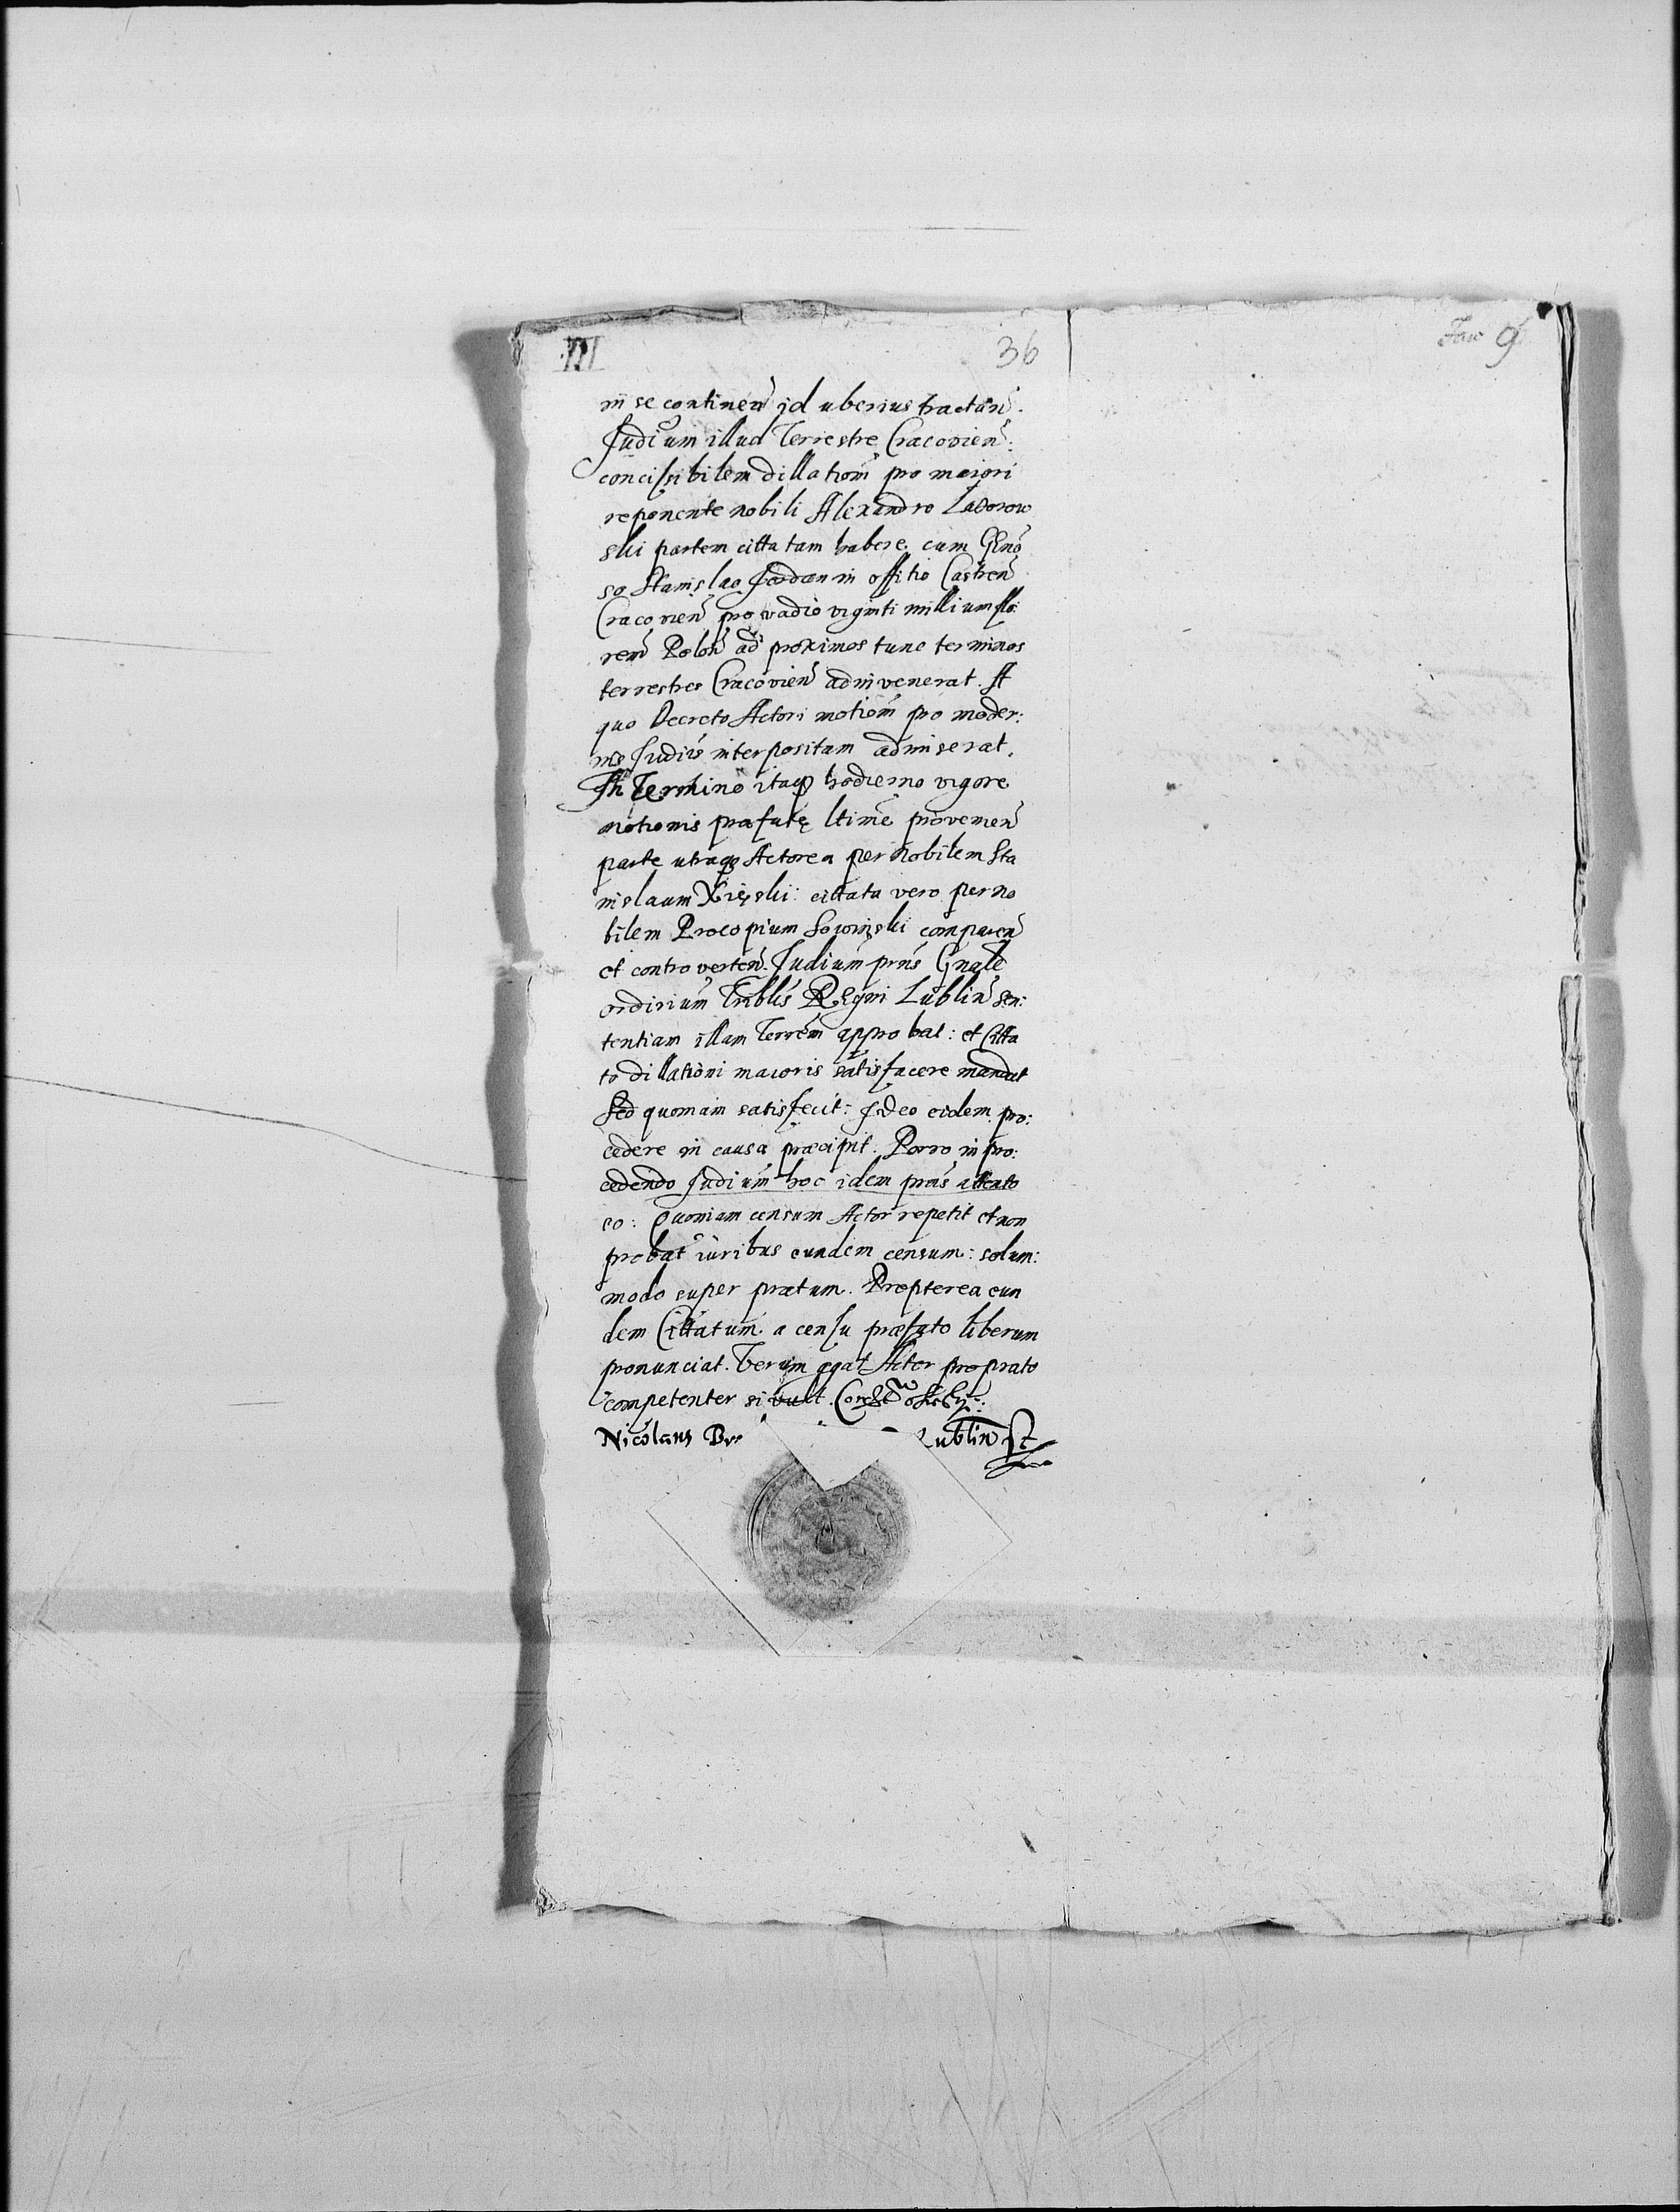 III 36
in se continen id uberius tractan.
Judium illud Terrestre Cracovien:
concissibilem dillationi pro maiori
reponente nobili Alexandro Ladorow
ski partem cittatam habere cum Gno
so Stanislao Jordan in offitio Castren
Cracovien pro vadio viginti millium flo
ren Polon ad proximos tunc terminos
terrestres Cracovien adinvenerat. A
quo Decreto Actori motiom pro moder:
nis Judiis interpositam admiserat.
In Termino itaq hodierno vigore
motionis præfatę ltime provenien
parte utraq Actorea per nobilem Sta
nislaum Kięski: cittata vero per no
bilem Procopium Sowinski comparen
et controverten. Judium prns Gnale
ordinium Tribles Regni Lublin sen:
tentiam illam Terrem approbat: et Citta
to dillationi maioris satisfacere mandat
Sed quoniam satisfecit: Ideo eidem pro:
cedere in causa præcipit. Porro in pro:
cedendo Judium hoc idem prns attento
eo: Quoniam censum Actor repetit et non
probat iuribus eundem censum: solum:
modo super pratum. Propterea eun
dem Cittatum a censu præfato liberum
pronunciat. Verum agat Actor pro prato
competenter si vult.
Nicolaus Br Lublin St
Faw 9